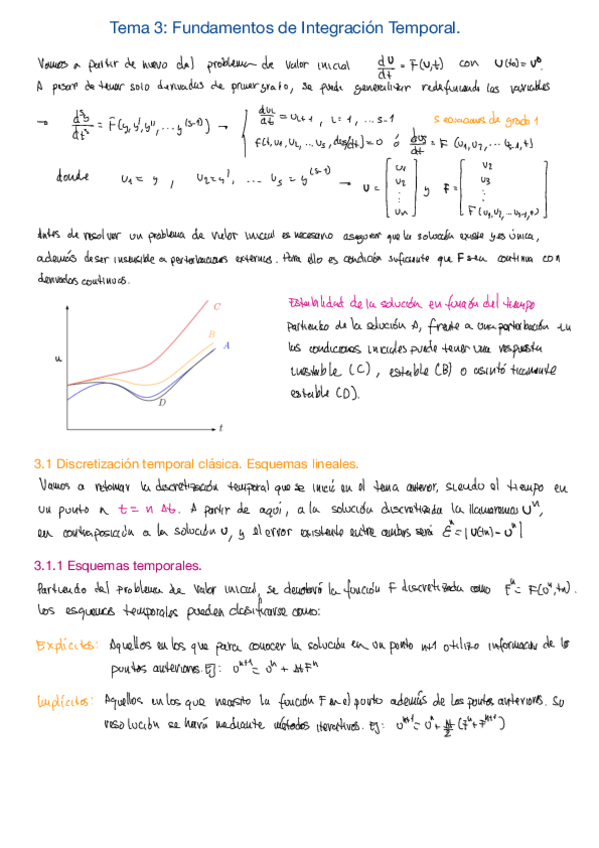 Tema 3: Fundamentos de Integración Temporal.
Vamos a partir de nuevo del problema de valor inicial dU/dt = F(U,t) con U(t₀)=U⁰.
A pesar de tener solo derivadas de primer grado, se puede generalizar redefiniendo las variables
→ dˢy/dtˢ = F(y, y', y'', ... y^(s-1)) → { du_i/dt = u_i+1, i = 1, ... s-1
s ecuaciones de grado 1
f(t, u₁, u₂, ... u_s, du_s/dt) = 0 ó du_s/dt = F
donde u₁ = y, u₂ = y', ... u_s = y^(s-1) → U = [u₁ u₂ ⋮ u_n] y F = [u₂ u₃ ⋮
Antes de resolver un problema de valor inicial es necesario asegurar que la solución existe y es única,
además de ser insensible a perturbaciones externas. Para ello es condición suficiente que F sea continua con
derivadas continuas.
Estabilidad de la solución en función del tiempo
Partiendo de la solución A, frente a una perturbación en
las condiciones iniciales puede tener una respuesta
inestable (C), estable (B) o asintóticamente
estable (D).
C
B
A
D
u
t
3.1 Discretización temporal clásica. Esquemas lineales.
Vamos a retomar la discretización temporal que se inició en el tema anterior, siendo el tiempo en
un punto n t = n Δt. A partir de aquí, a la solución discretizada la llamaremos Uⁿ,
en contraposición a la solución U, y el error existente entre ambas será Eⁿ = |U(tn) - Uⁿ|
3.1.1 Esquemas temporales.
Partiendo del Problema de Valor Inicial, se denotará la función F discretizada como Fⁿ = F(Uⁿ, tn).
Los esquemas temporales pueden clasificarse como:
Explícitos: Aquellos en los que para conocer la solución en un punto n+1 utilizo información de los
puntos anteriores. Ej: Uⁿ⁺¹ = Uⁿ + Δt Fⁿ
Implícitos: Aquellos en los que necesito la función F en el punto además de los puntos anteriores. Su
resolución se hará mediante métodos iterativos. Ej: Uⁿ⁺¹ = Uⁿ + Δt/2 (Fⁿ + Fⁿ⁺¹)